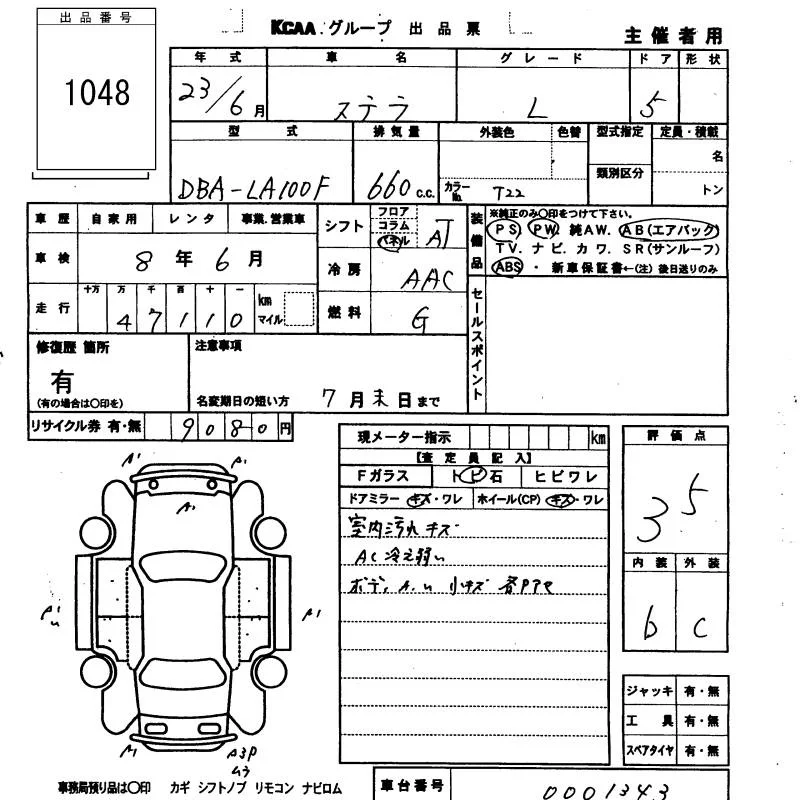 出品番号
1048
KCAA グループ 出品票
主催者用
年式 車名 グレード ドア 形状
23/6月 ステラ L 5
型式 排気量 外装色 色替 型式指定 定員・積載
名
類別区分
DBA-LA100F 660c.c. カラーNo. T22 トン
車歴 自家用 レンタ 事業.営業車
車検 8年6月
走行 十万 万 千 百 十 一
47110 km マイル
シフト フロア コラム パネル AT
冷房 AAC
燃料 G
装備品 ※純正のみ〇印をつけて下さい。
PS. PW. 純AW. AB(エアバック)
TV. ナビ. カワ. SR(サンルーフ)
ABS・新車保証書←(注)後日送りのみ
セールスポイント
修復歴 箇所
有
(有の場合は〇印を)
注意事項
名変期日の短い方 7月末日まで
リサイクル券 有・無 9080円
現メーター指示 km
【査定員記入】
Fガラス トビ石 ヒビワレ
ドアミラー キズ・ワレ ホイール(CP) キズ・ワレ
室内汚れキズ
AC冷え弱い
評価点
35
内装 外装
b c
A' A'
A'
A'
A'
A'
A3P
ジャッキ 有・無
工具 有・無
スペアタイヤ 有・無
事務局預り品は〇印 カギ シフトノブ リモコン ナビロム
車台番号 0001343